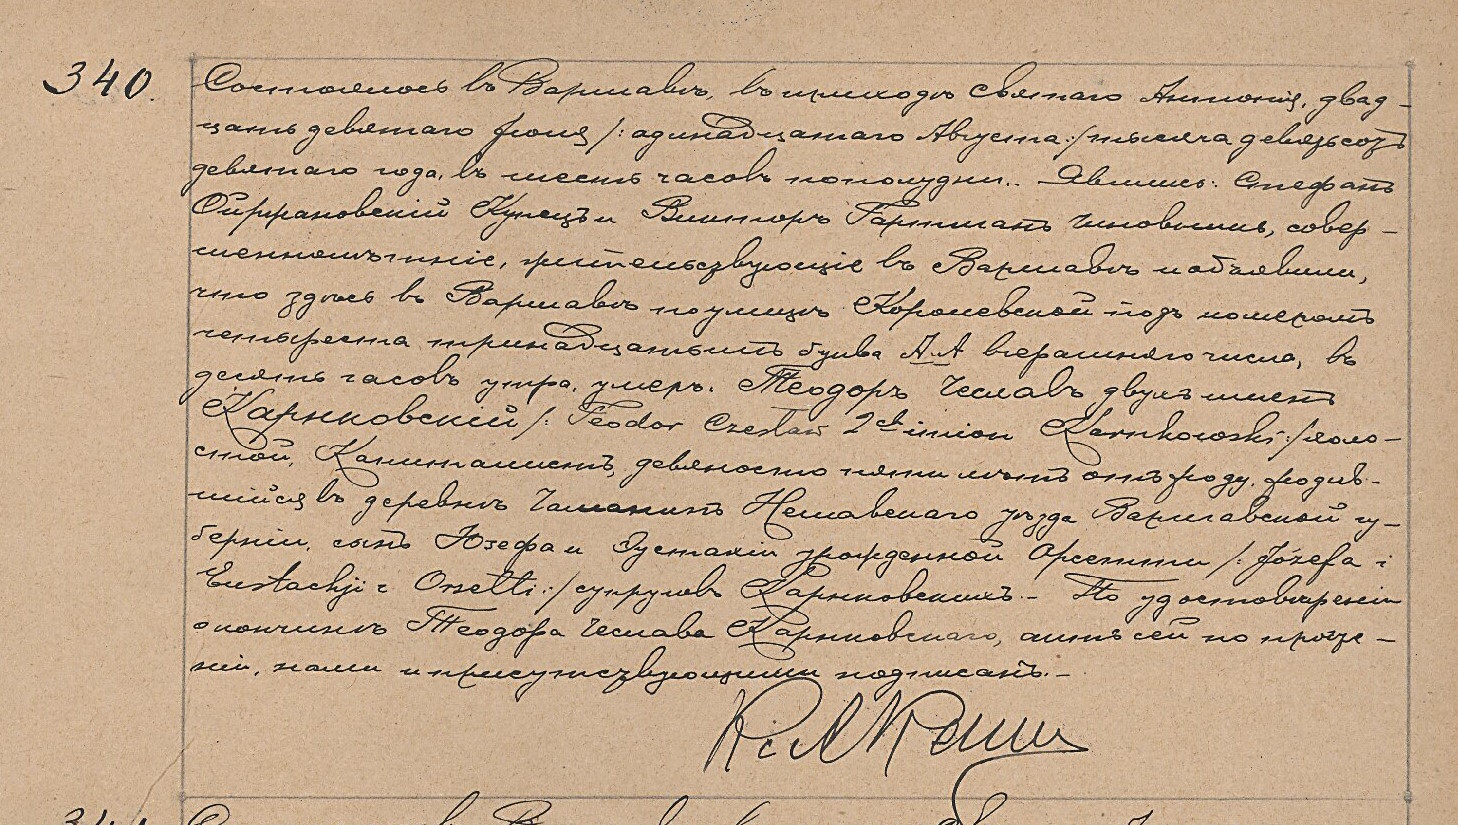 340.
Состоялось въ Варшавѣ, въ приходѣ Святаго Антонія, двад-
цать девятаго Іюля /: одинадцатаго Августа :/ тысяча девятьсотъ
девятаго года, въ шесть часовъ пополудни. Явились: Стефанъ
Купецъ и Викторъ Гартманъ чиновникъ, совер-
шеннолѣтніе, жительствующіе въ Варшавѣ и объявили,
что здѣсь въ Варшавѣ по улицѣ Королевской подъ номеромъ
четыреста тринадцатымъ буква А.А вчерашняго числа, въ
десять часовъ утра, умеръ. Теодоръ Чеславъ двухъ именъ
Карнковскій /: Teodor Czesław 2ch imion Karnkowski :/ холо-
стой, Капиталистъ, девяносто пяти лѣтъ отъ роду, родив-
шійся въ деревнѣ Чаманинъ Нешавскаго уѣзда Варшавской гу-
берніи, сынъ Юзефа и Эустахіи урожденной Орсетти /: Józefa i
Eustachji z Orsetti :/ супруговъ Карнковскихъ. - По удостовѣреніи
о кончинѣ Теодора Чеслава Карнковскаго, актъ сей по проче-
ніи, нами и присутствующими подписанъ. -